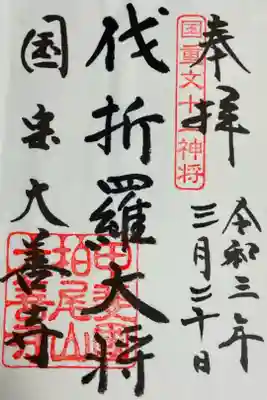 奉拝
国重文十二神将
令和三年
三月三十日
伐折羅大将
国宝大善寺
甲斐國
柏尾山
大善寺